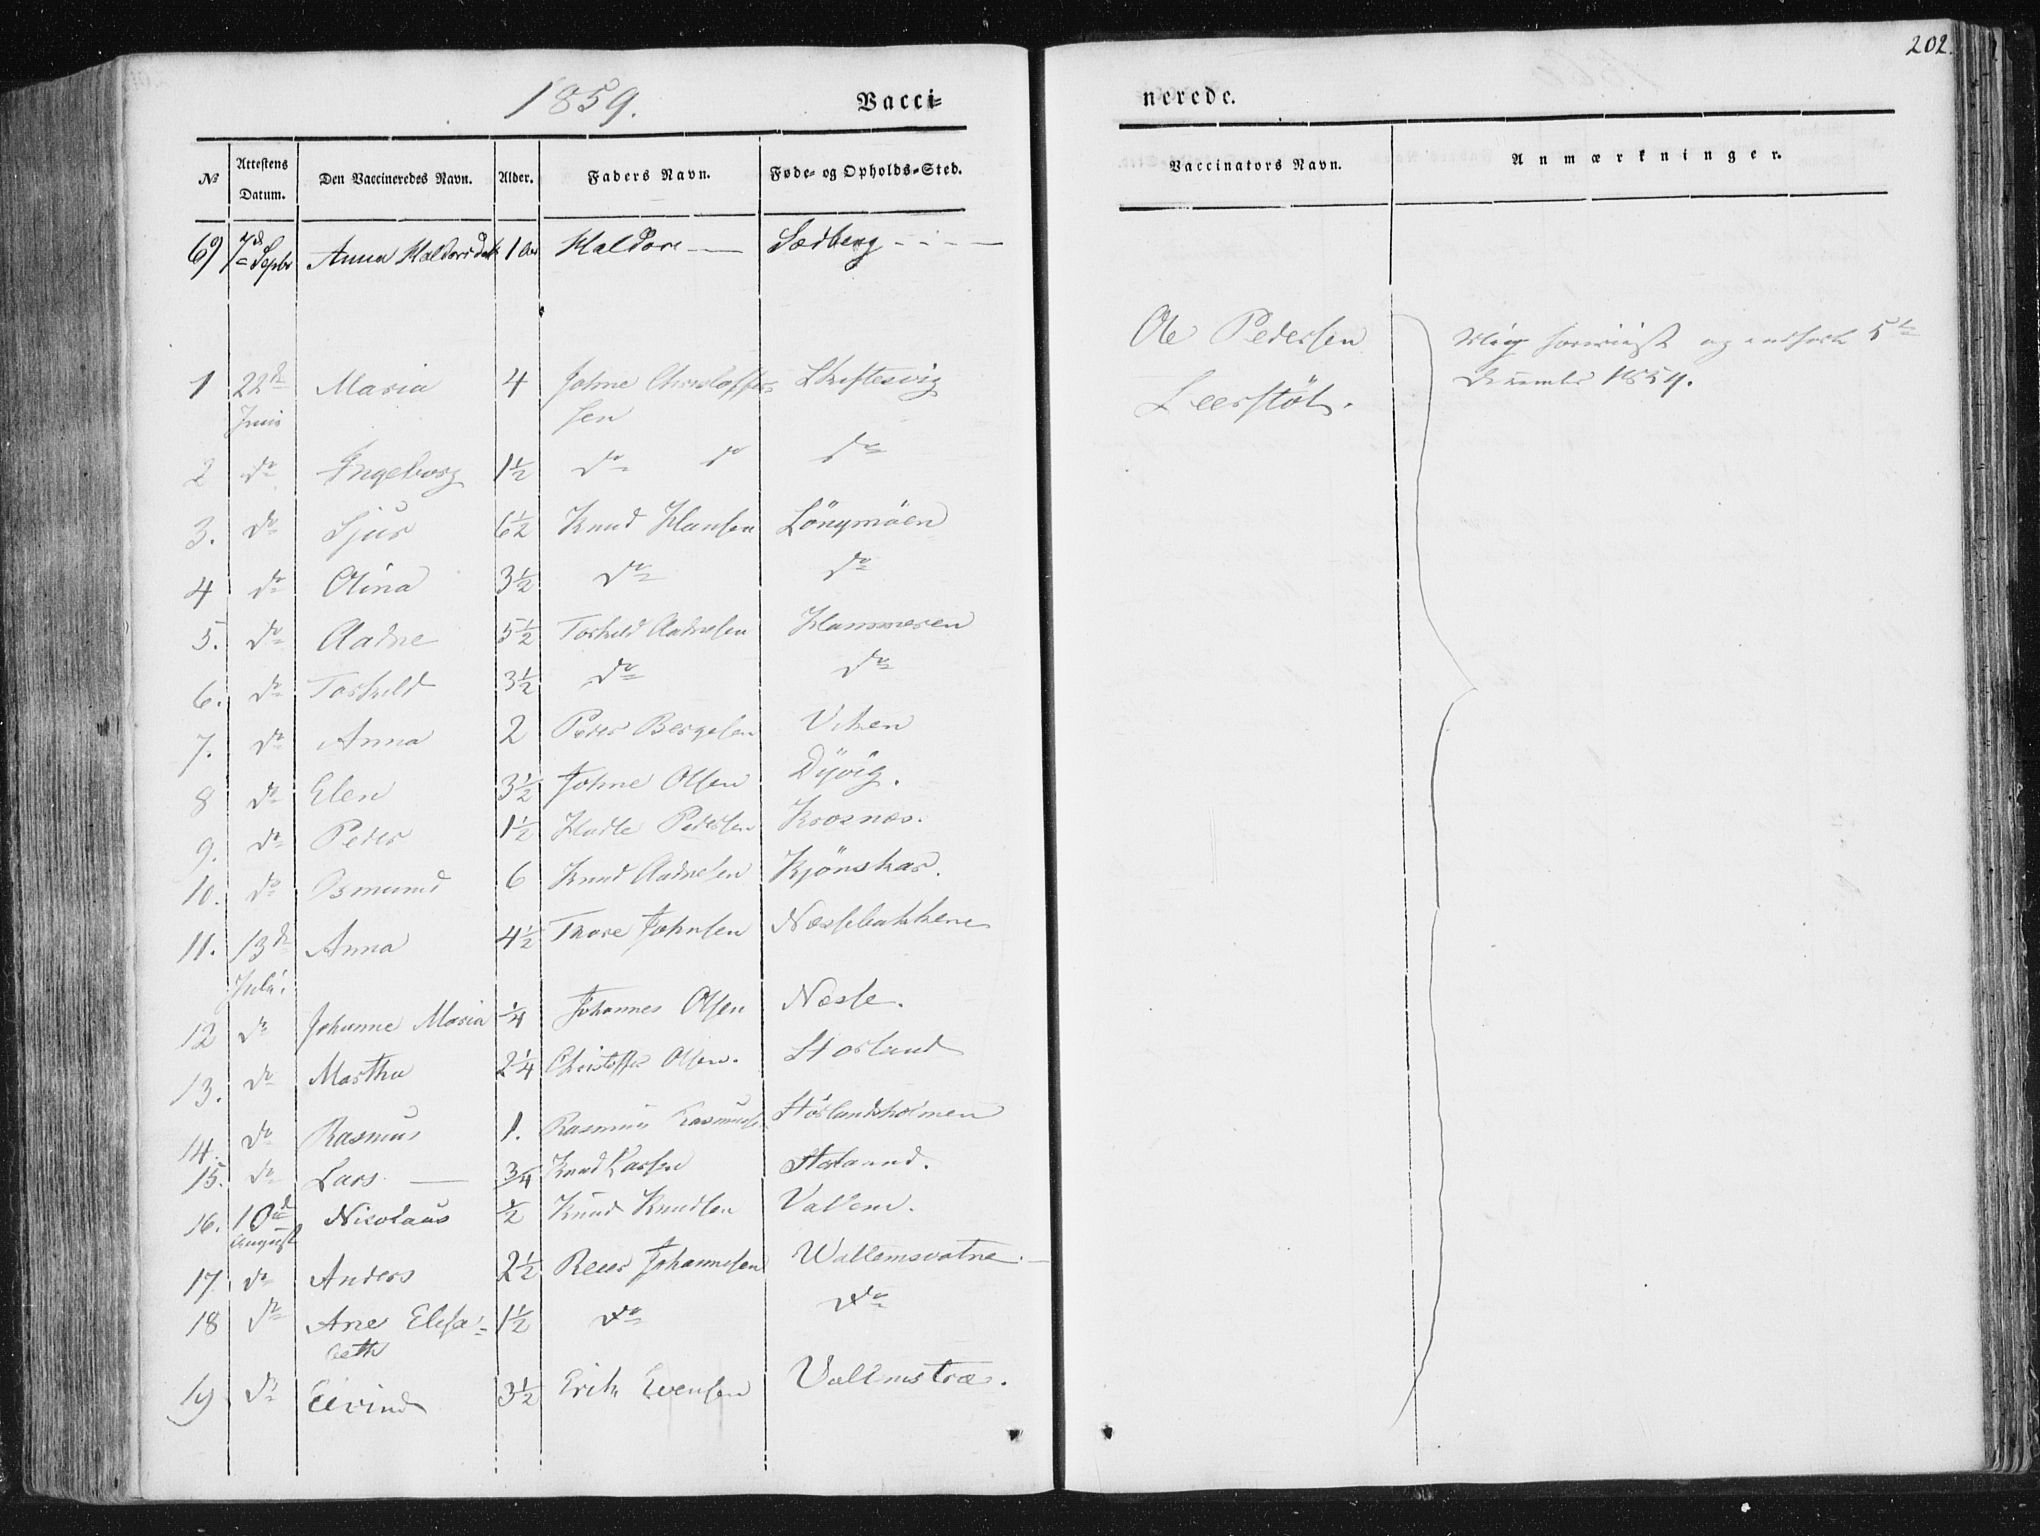 202.
1859. Vacci= nerede.
№ Attestens Datum. Den Vaccineredes Navn. Alder. Faders Navn. Føde- og Opholds-Sted. Vaccinators Navn. Anmærkninger.
69 7de Septbr Anna Haldorsdatt 1 Aar Haldore — Sædberg - - - —
Ole Pedersen
Leerstöl. og indført 5te December 1859.
1 22de Juni Maria 4 Johne Christoffersen Skiftesvig
2 do Ingeborg 1½ do do do
3. do Sjur 6½ Knud Hansen Löngmöen
4 do Olina 3½ do do
5. do Aadne 5½ Torkild Aadnesen Hammeren
6. do Torkild 3½ do do
7. do Anna 2 Peder Bergesen Viken
8 do Elen 3½ Johne Olsen Dyvig.
9. do Peder 1½ Hadle Pedersen Krosnæs.
10. do Osmund 6 Knud Aadnesen Kjönskar.
11. 13de Juli. Anna 4½ Thore Johnsen Nesselbakkene
12 do Johanne Maria ¼ Johannes Olsen Nesse.
13. do Martha 2¼ Christoffer Olsen. Storland
14. do Rasmus 1. Rasmus Rasmuss Störlandsholmen
15. do Lars — ¾ Knud Larsen
16. 10de August Nicolaus ½ Knud Knudsen Vallem.
17. do Anders 2½ Reier Johannesen Wallemsvatne. —
18 do Ane Elisabeth 1½ do do
19 do Eivind 3½ Erik Evensen Vallemstræ.